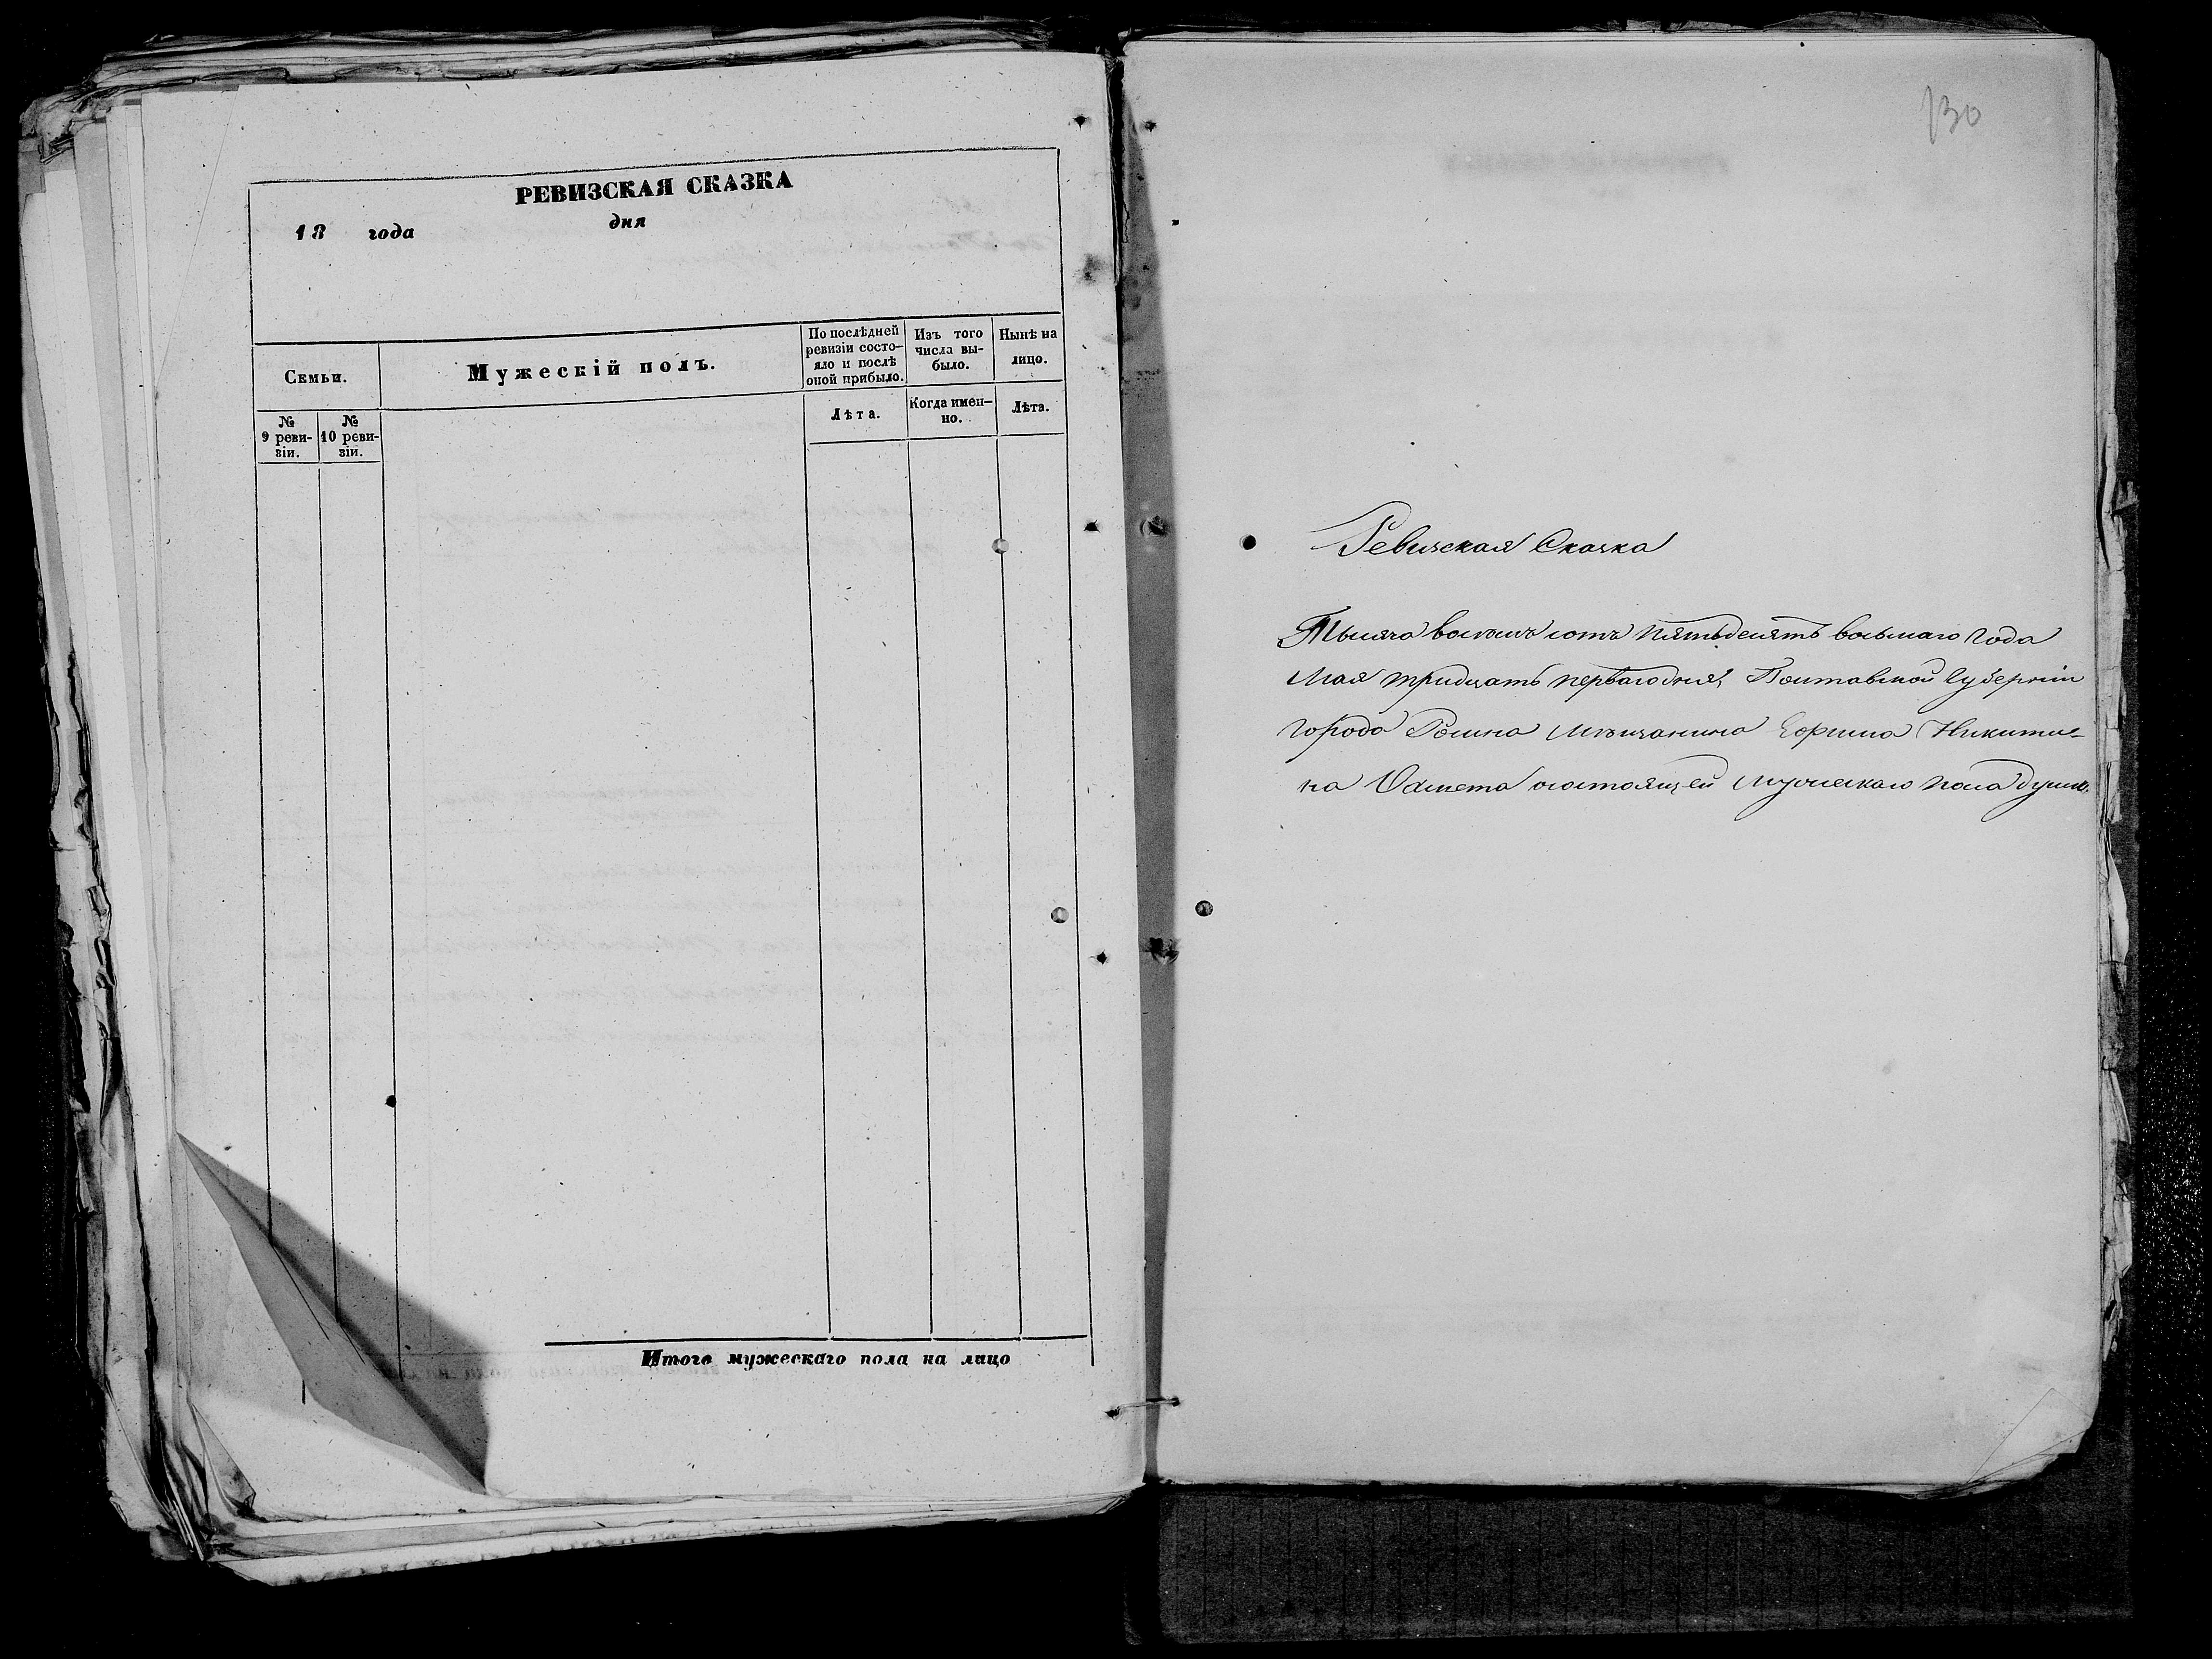 РЕВИЗСКАЯ СКАЗКА
18 года дня
Семьи.
Мужескій полъ.
По послѣдней ревизіи состо-
яло и послѣ
оной прибыло.
Изъ того
числа вы-
было.
Нынѣ на
лицо.
№
9 реви-
зіи.
№
10 реви-
зіи.
Лѣта.
Когда имен-
но.
Лѣта.
Итого мужескаго пола на лицо
130
Ревизская Сказка
Тысяча восемь сотъ пятьдесятъ восьмаго года
Мая тридцать перваго дня, Полтавской Губерніи
города Ромна мѣщанина Ефима Никити-
на состоящей мужескаго пола